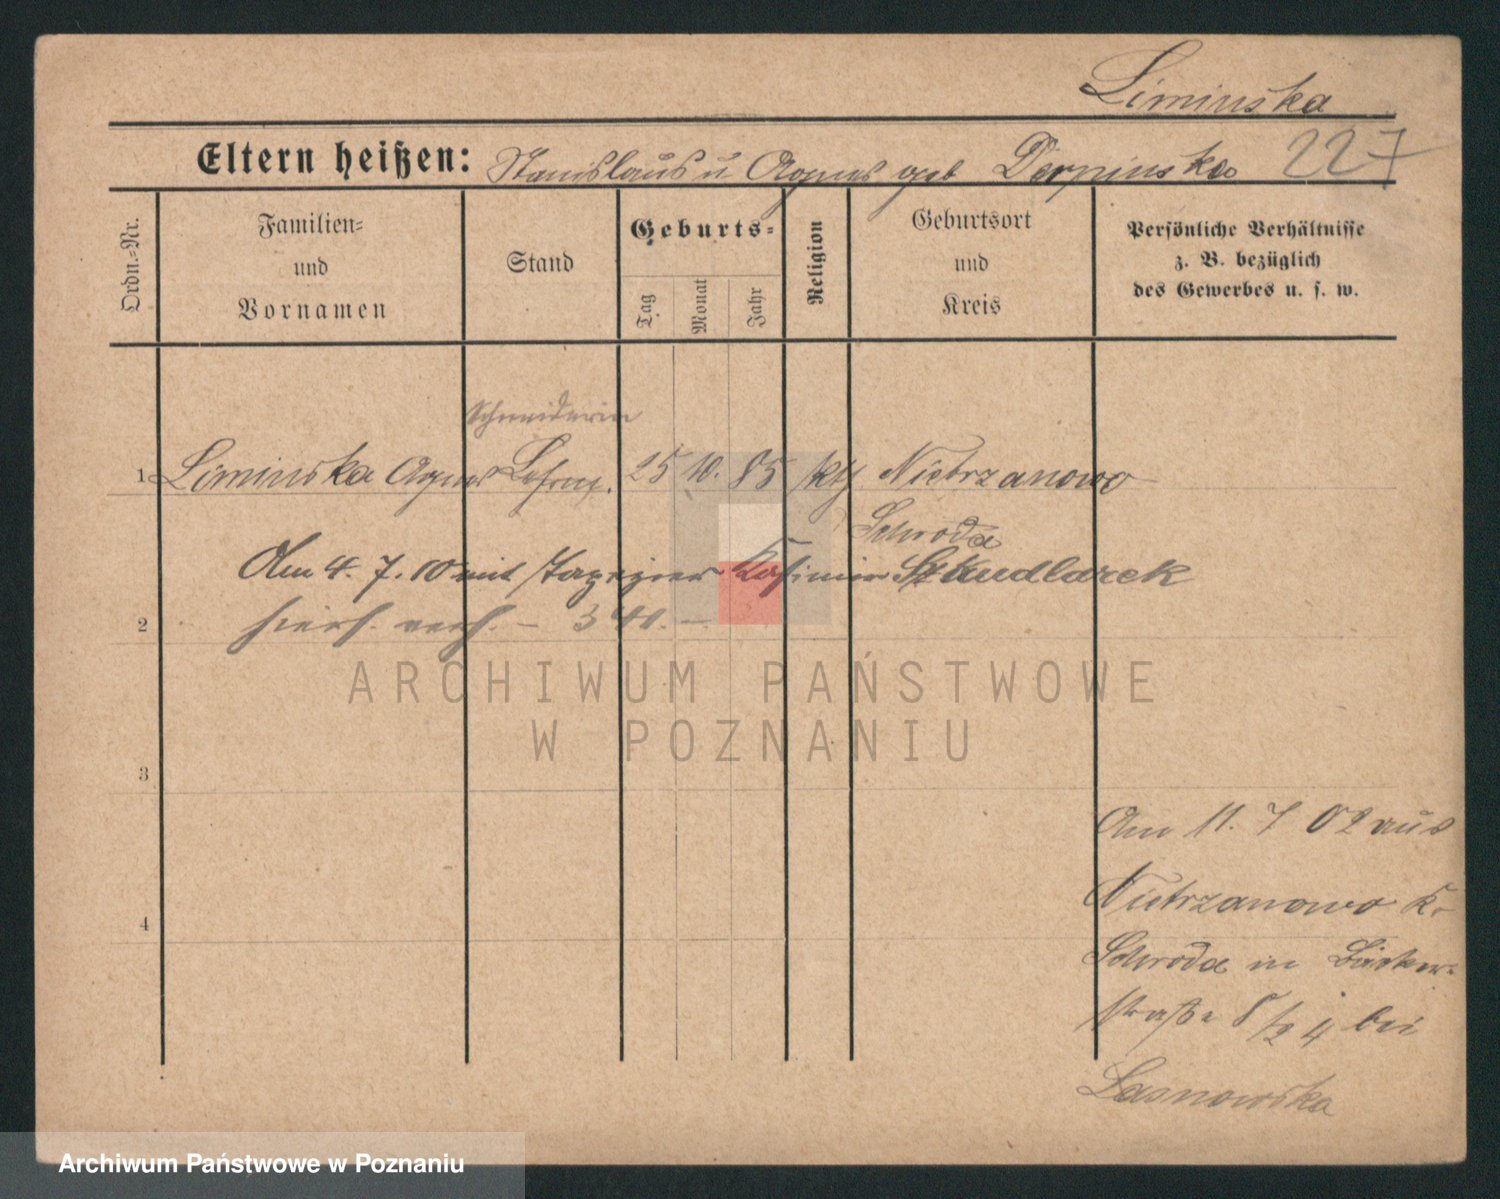 Liminska
Eltern heißen: Stanislaus u Agnes geb Derpinska 227
Ordn.-Nr.
Familien-
und
Vornamen
Stand
Geburts-
Tag
Monat
Jahr
Religion
Geburtsort
und
Kreis
Persönliche Verhältnisse
z. B. bezüglich
des Gewerbes u. s. w.
Schneiderin
1 Liminska Agnes Lehrm. 25 10. 85 kth Nietrzanowo
Schroda
Am 4. 7. 10 mit Tapezier Kasimir Skudlarek
2 hierf. verh. –
3
4
Am 11. 7 02 aus
Nietrzanowo Kr
Schroda in Bäcker-
straße 8/9 4 bei
Lasnowska
ARCHIWUM PAŃSTWOWE
W POZNANIU
Archiwum Państwowe w Poznaniu